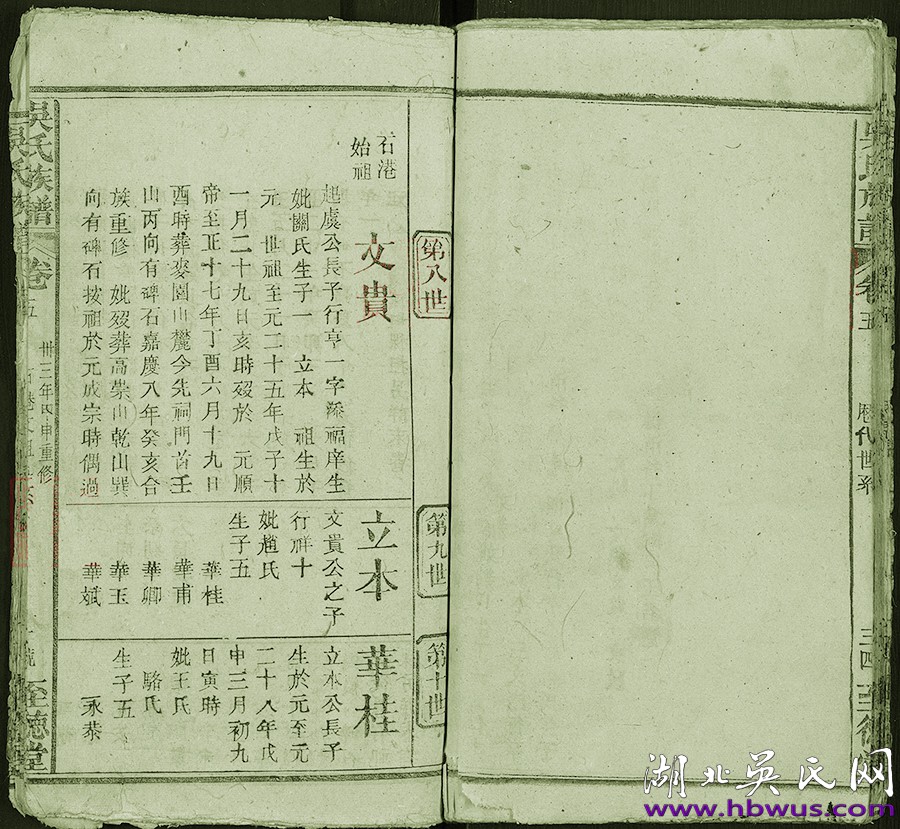 吳氏族譜
卷五
歷代世系
三四
至德堂
第八世
石港
始祖
文貴
起虞公長子行亨一字添福庠生
妣關氏生子一 立本 祖生於
元 世祖至元二十五年戊子十
一月二十九日亥時歿於 元順
帝至正十七年丁酉六月十九日
酉時葬麥園山麓今先祠門首壬
山丙向有碑石嘉慶八年癸亥合
族重修 妣歿葬高崇山乾山巽
向有碑石按祖於元成宗時偶過
第九世
立本
文貴公之子
行祥十
妣趙氏
生子五
華桂
華甫
華卿
華玉
華斌
第十世
華桂
立本公長子
生於元至元
二十八年戊
申三月初九
日寅時
妣王氏
駱氏
生子五
永恭
吳氏族譜
卷五
卅三年甲申重修
至德堂
湖北吴氏网
www.hbwus.com